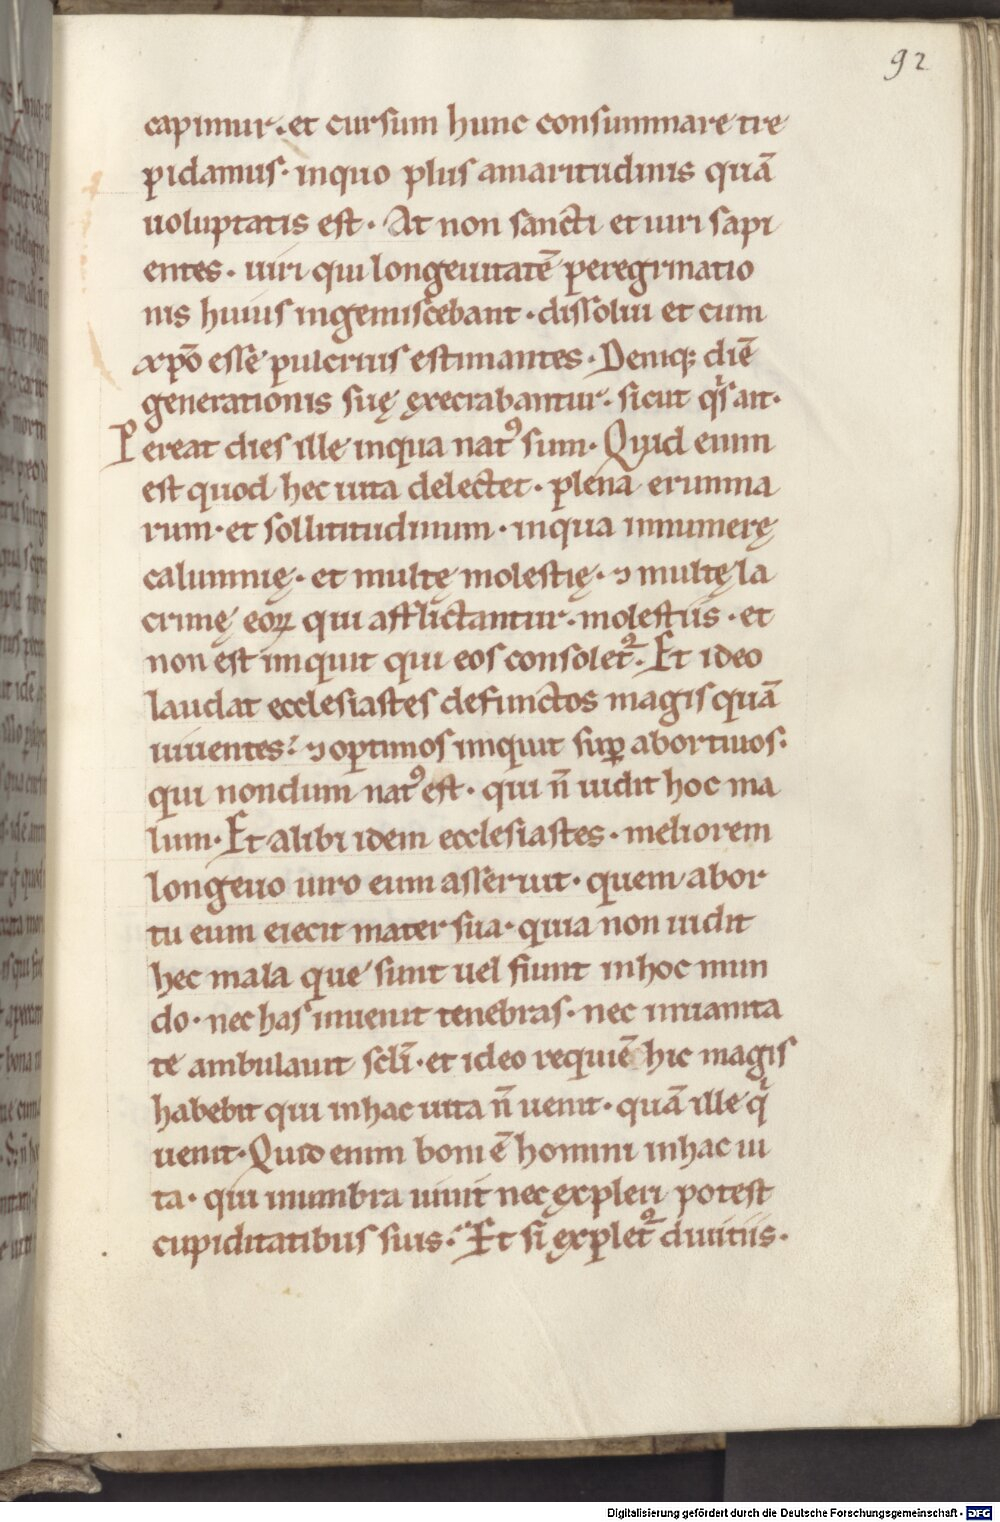 92
capimur · et cursum hunc consummare tre
pidamus · inquo plus amaritudinis quā
uoluptatis est · At non sancti et uiri sapi
entes · uiri qui longeuitatē peregrinatio
nis huius ingemiscebant · dissolui et cum
xp̄o esse pulcrius estimantes · Deniq; diē
generationis suę execrabantur · sicut q̇sait ·
Pereat dies ille inqua natꝰ sum · Quid enim
est quod hec uita delectet · plena erumna
rum · et sollititudinum · inqua innumerę
calumnię · et multę molestię · ⁊ multę la
crimę eoꝝ qui afflictantur · molestiis · et
non est inquit qui eos consolet᷑ · Et ideo
laudat ecclesiastes defunctos magis quā
uiuentes · ⁊ optimos inquit suꝑ abortiuos ·
qui nondum natꝰ est · qui n̄ uidit hoc ma
lum · Et alibi idem ecclesiastes · meliorem
longeuo uiro eum asseruit · quem abor
tu eum eiecit mater sua · quia non uidit
hec mala que sunt uel fiunt inhoc mun
do · nec has inuenit tenebras · nec inuanita
te ambulauit scl̄i · et ideo requiē hic magis
habebit qui inhac uita n̄ uenit · quā ille q̇
uenit · Quid enim boni ē homini inhac ui
ta · qui inumbra uiuit nec expleri potest
cupiditatibus suis · Et si explet᷑ diuitiis ·
Digitalisierung gefördert durch die Deutsche Forschungsgemeinschaft - DFG